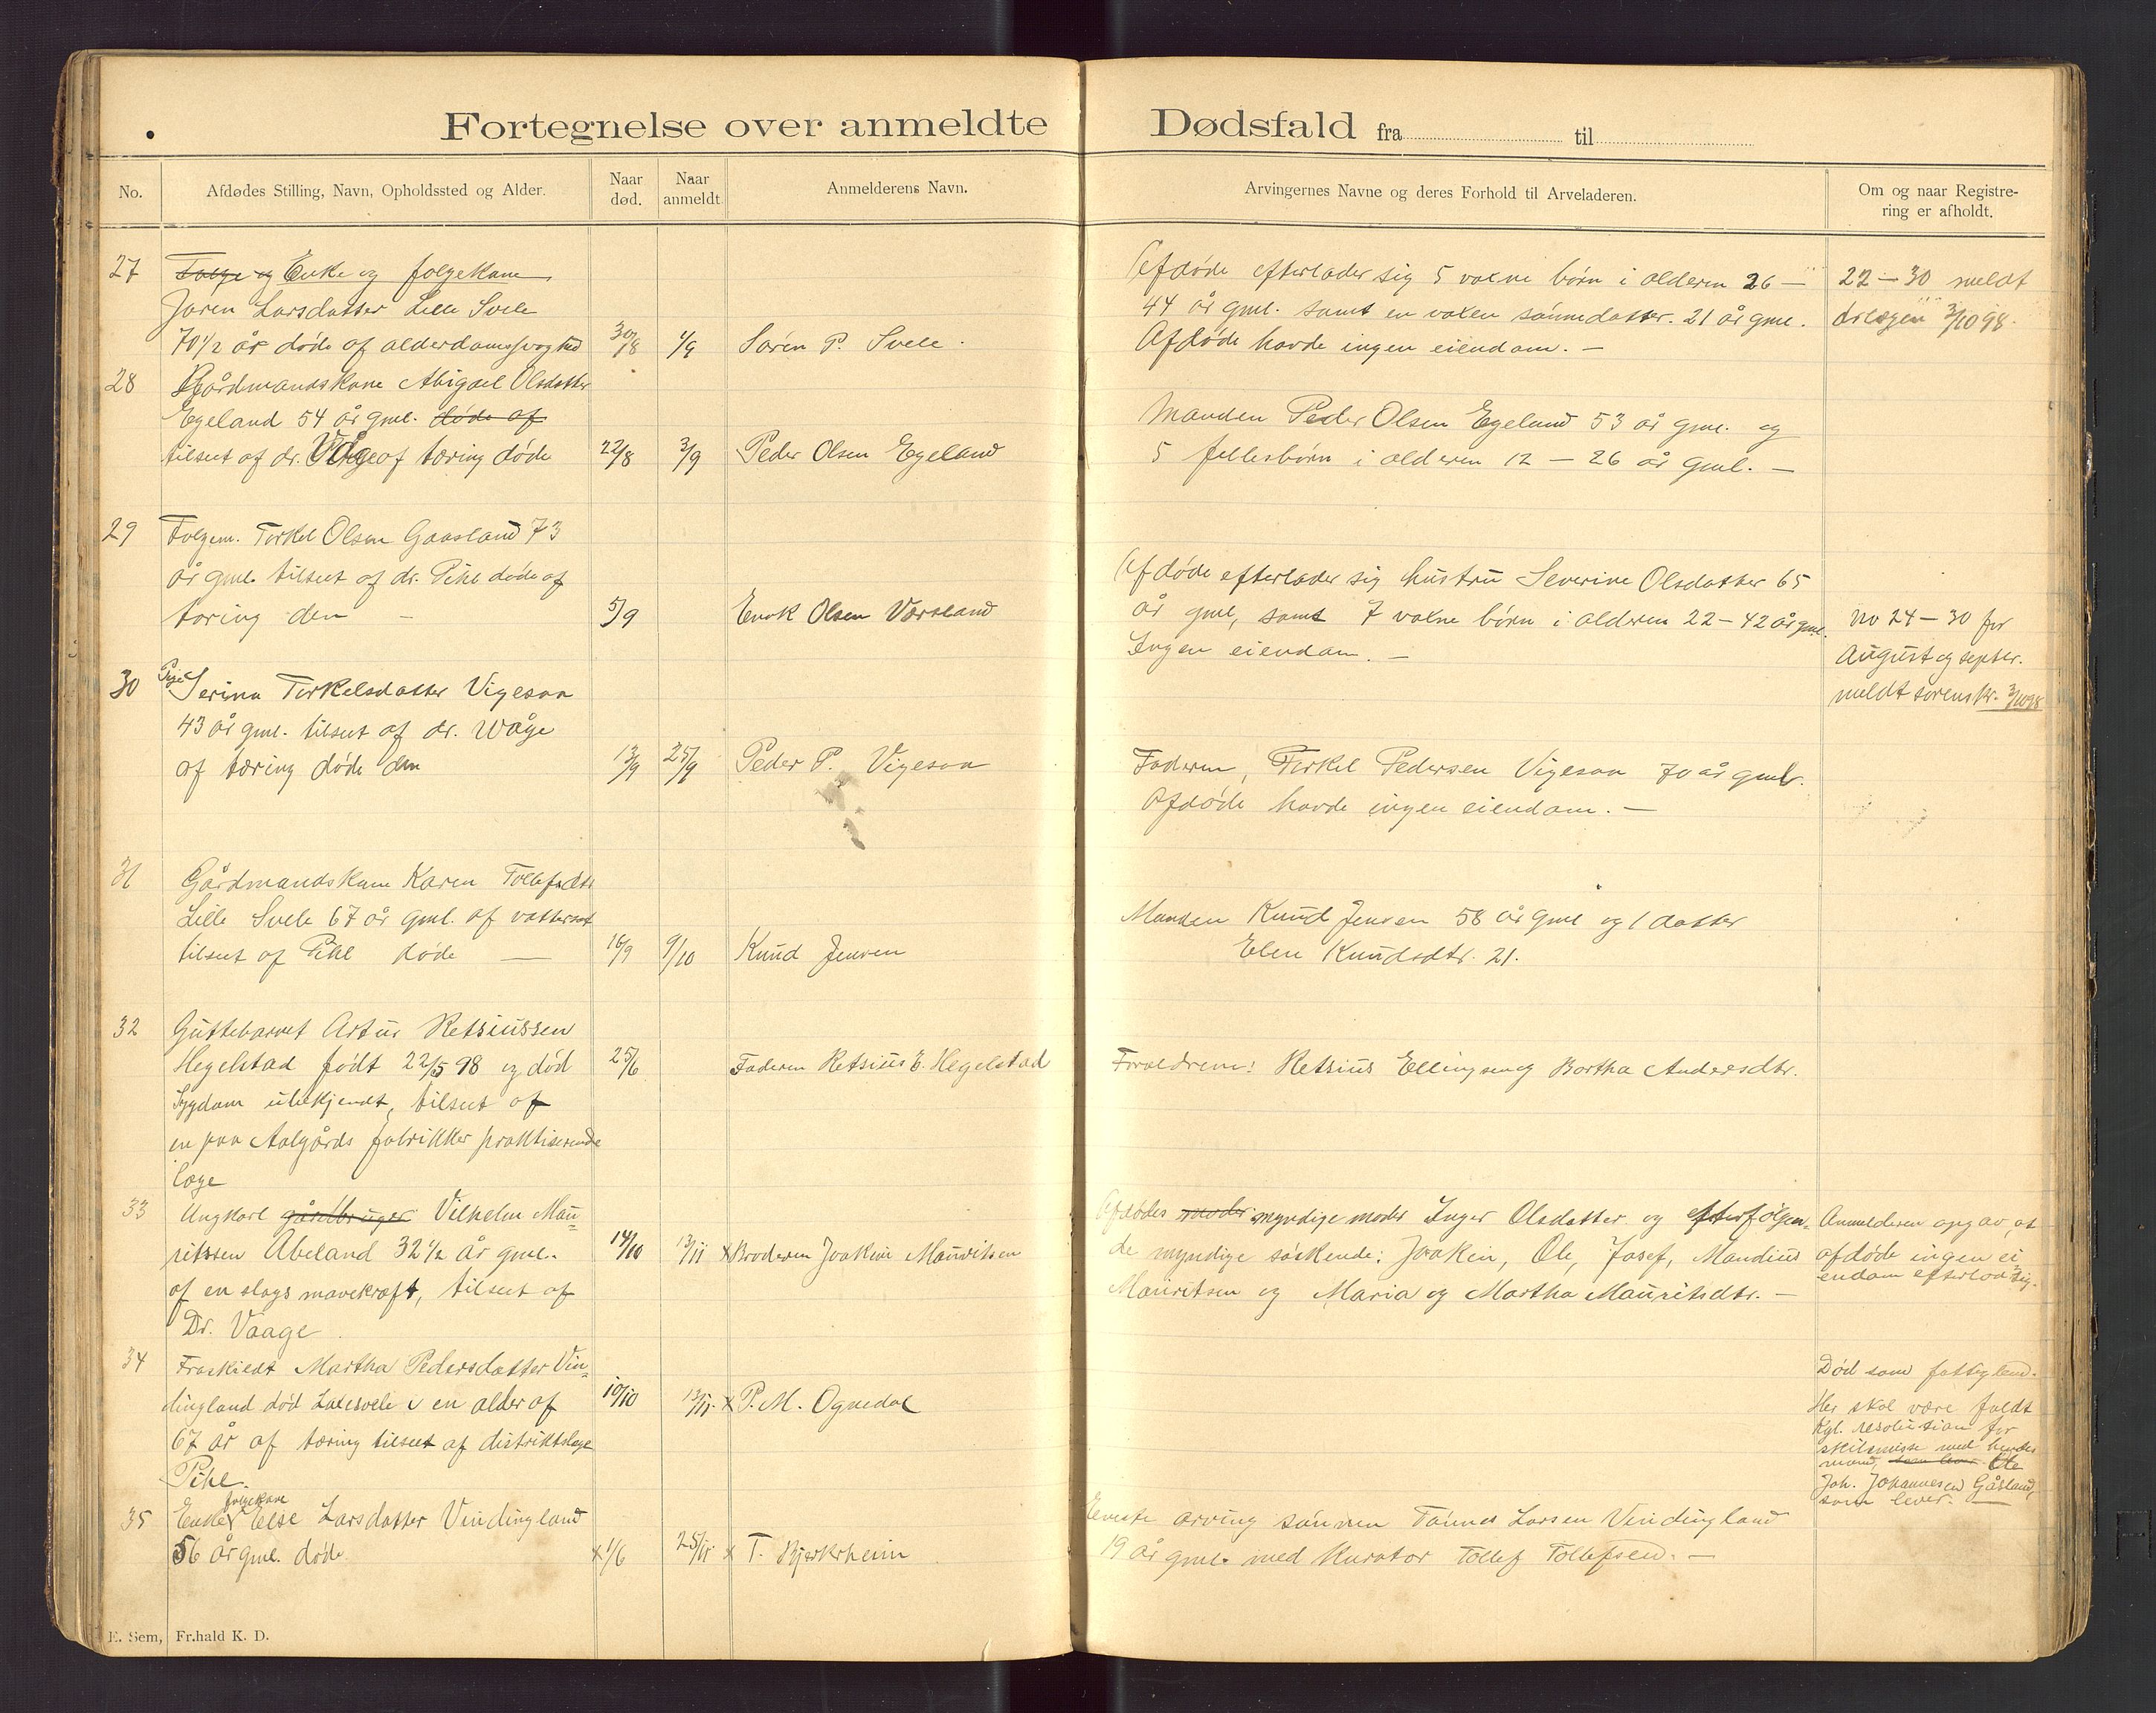 Fortegnelse over anmeldte Dødsfald fra til
No.
Afdødes Stilling, Navn, Opholdssted og Alder.
Naar død.
Naar anmeldt.
Anmelderens Navn.
Arvingernes Navne og deres Forhold til Arveladeren.
Om og naar Registrering er afholdt.
27 Folge og Enke og folgekone
Joren Larsdatter Lille Svele
70 1/2 år døde af alderdomssvaghed 30/8 1/9 Søren P. Svele.
Afdøde efterlader sig 5 voxne børn i alderen 26 —
44 år gml. samt en voxen sønnedatter. 21 år gml.
Afdøde havde ingen eiendom. —
22 — 30 meldt
dr lægen 3/10 98.
28 Gårdmandskone Abigael Olsdatter
Egeland 54 år gml. døde af
tilseet af dr. Våge af tæring døde 22/8 3/9 Peder Olsen Egeland
Manden Peder Olsen Egeland 53 år gml. og
5 fellesbørn i alderen 12 — 26 år gml. —
29 Folgem. Torkel Olsen Gaasland 73
år gml. tilseet af dr. Pihl døde af
tæring den — 5/9 Enok Olsen Værsland
Afdøde efterlader sig hustru Severine Olsdatter 65
år gml, samt 7 voxne børn i alderen 22 — 42 år gml.
Ingen eiendom. —
No 24 — 30 for
August og septer.
meldt sorenskr. 3/10 98
30 Pige Serina Torkelsdatter Vigesaa
43 år gml. tilseet af dr. Wåge
af tæring døde den 13/9 25/9 Peder P. Vigesaa
Faderen, Torkel Pedersen Vigesaa 70 år gml.
Afdøde havde ingen eiendom. —
31 Gårdmandskone Karen Tollefsdtr
Lille Svele 67 år gml. af vattersot
tilseet af Pihl døde — 16/9 9/10 Knud Jensen
Manden Knud Jensen 58 år gml og 1 datter
Elen Knudsdtr. 21.
32 Guttebarnet Artur Retsiussen
Hegelstad født 22/5 98 og død 25/6 Faderen Retsius E. Hegelstad
Sygdom ubekjendt, tilseet af
en paa Aalgårds fabrikker praktiserende
læge
Forældrene: Retsius Ellingsen og Bertha Andersdtr.
33 Ungkarl gårdbruger Vilhelm Mau-
ritssen Åbeland 32 1/2 år gml. 14/10 13/11 x Broderen Joakim Mauritsen
af en slags mavekræft, tilseet af
Dr. Vaage.
Afdødes moder myndige moder Inger Olsdatter og efterfølgen-
de myndige søskende: Joakin, Ole, Josef, Mandius
Mauritsen og Maria og Martha Mauritsdtr. —
Anmelderen opgav, at
afdøde ingen ei-
endom efterlod sig.
34 Fraskildt Martha Pedersdatter Vin-
dingland død Laxesvele i en alder af 10/10 13/11. x P. M. Ognedal
67 år af tæring tilseet af distriktslæge
Pihl.
Død som fattiglem.
Her skal være faldt
Kgl. resolution for
skilsmisse med hendes
mand, som lever Ole
Joh. Johannesen Gåsland,
som lever. —
35 Enke folgekone Else Larsdatter Vindingland
56 år gml. døde x 1/6 25/11 x T. Bjerkrheim
Eneste arving sønnen Tønnes Larsen Vindingland
19 år gml. med kurator Tollef Tollefsen. —
E. Sem, Fr.hald K. D.